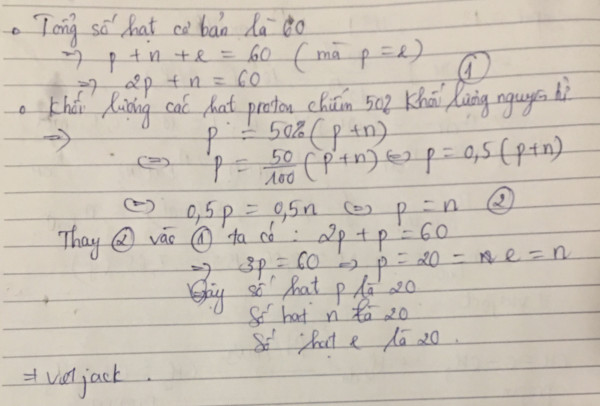 • Tổng số hạt cơ bản là 60
=> p + n + e = 60 (mà p = e)
=> 2p + n = 60 ①
• Khối lượng các hạt proton chiếm 50% khối lượng nguyên tử
=> p = 50% (p+n)
<=> p = 50/100 (p+n) <=> p = 0,5 (p+n)
<=> 0,5p = 0,5n <=> p = n ②
Thay ② vào ① ta có : 2p + p = 60
=> 3p = 60 => p = 20 = e = n
Vậy số hạt p là 20
Số hạt n là 20
Số hạt e là 20 .
=> vietjack .